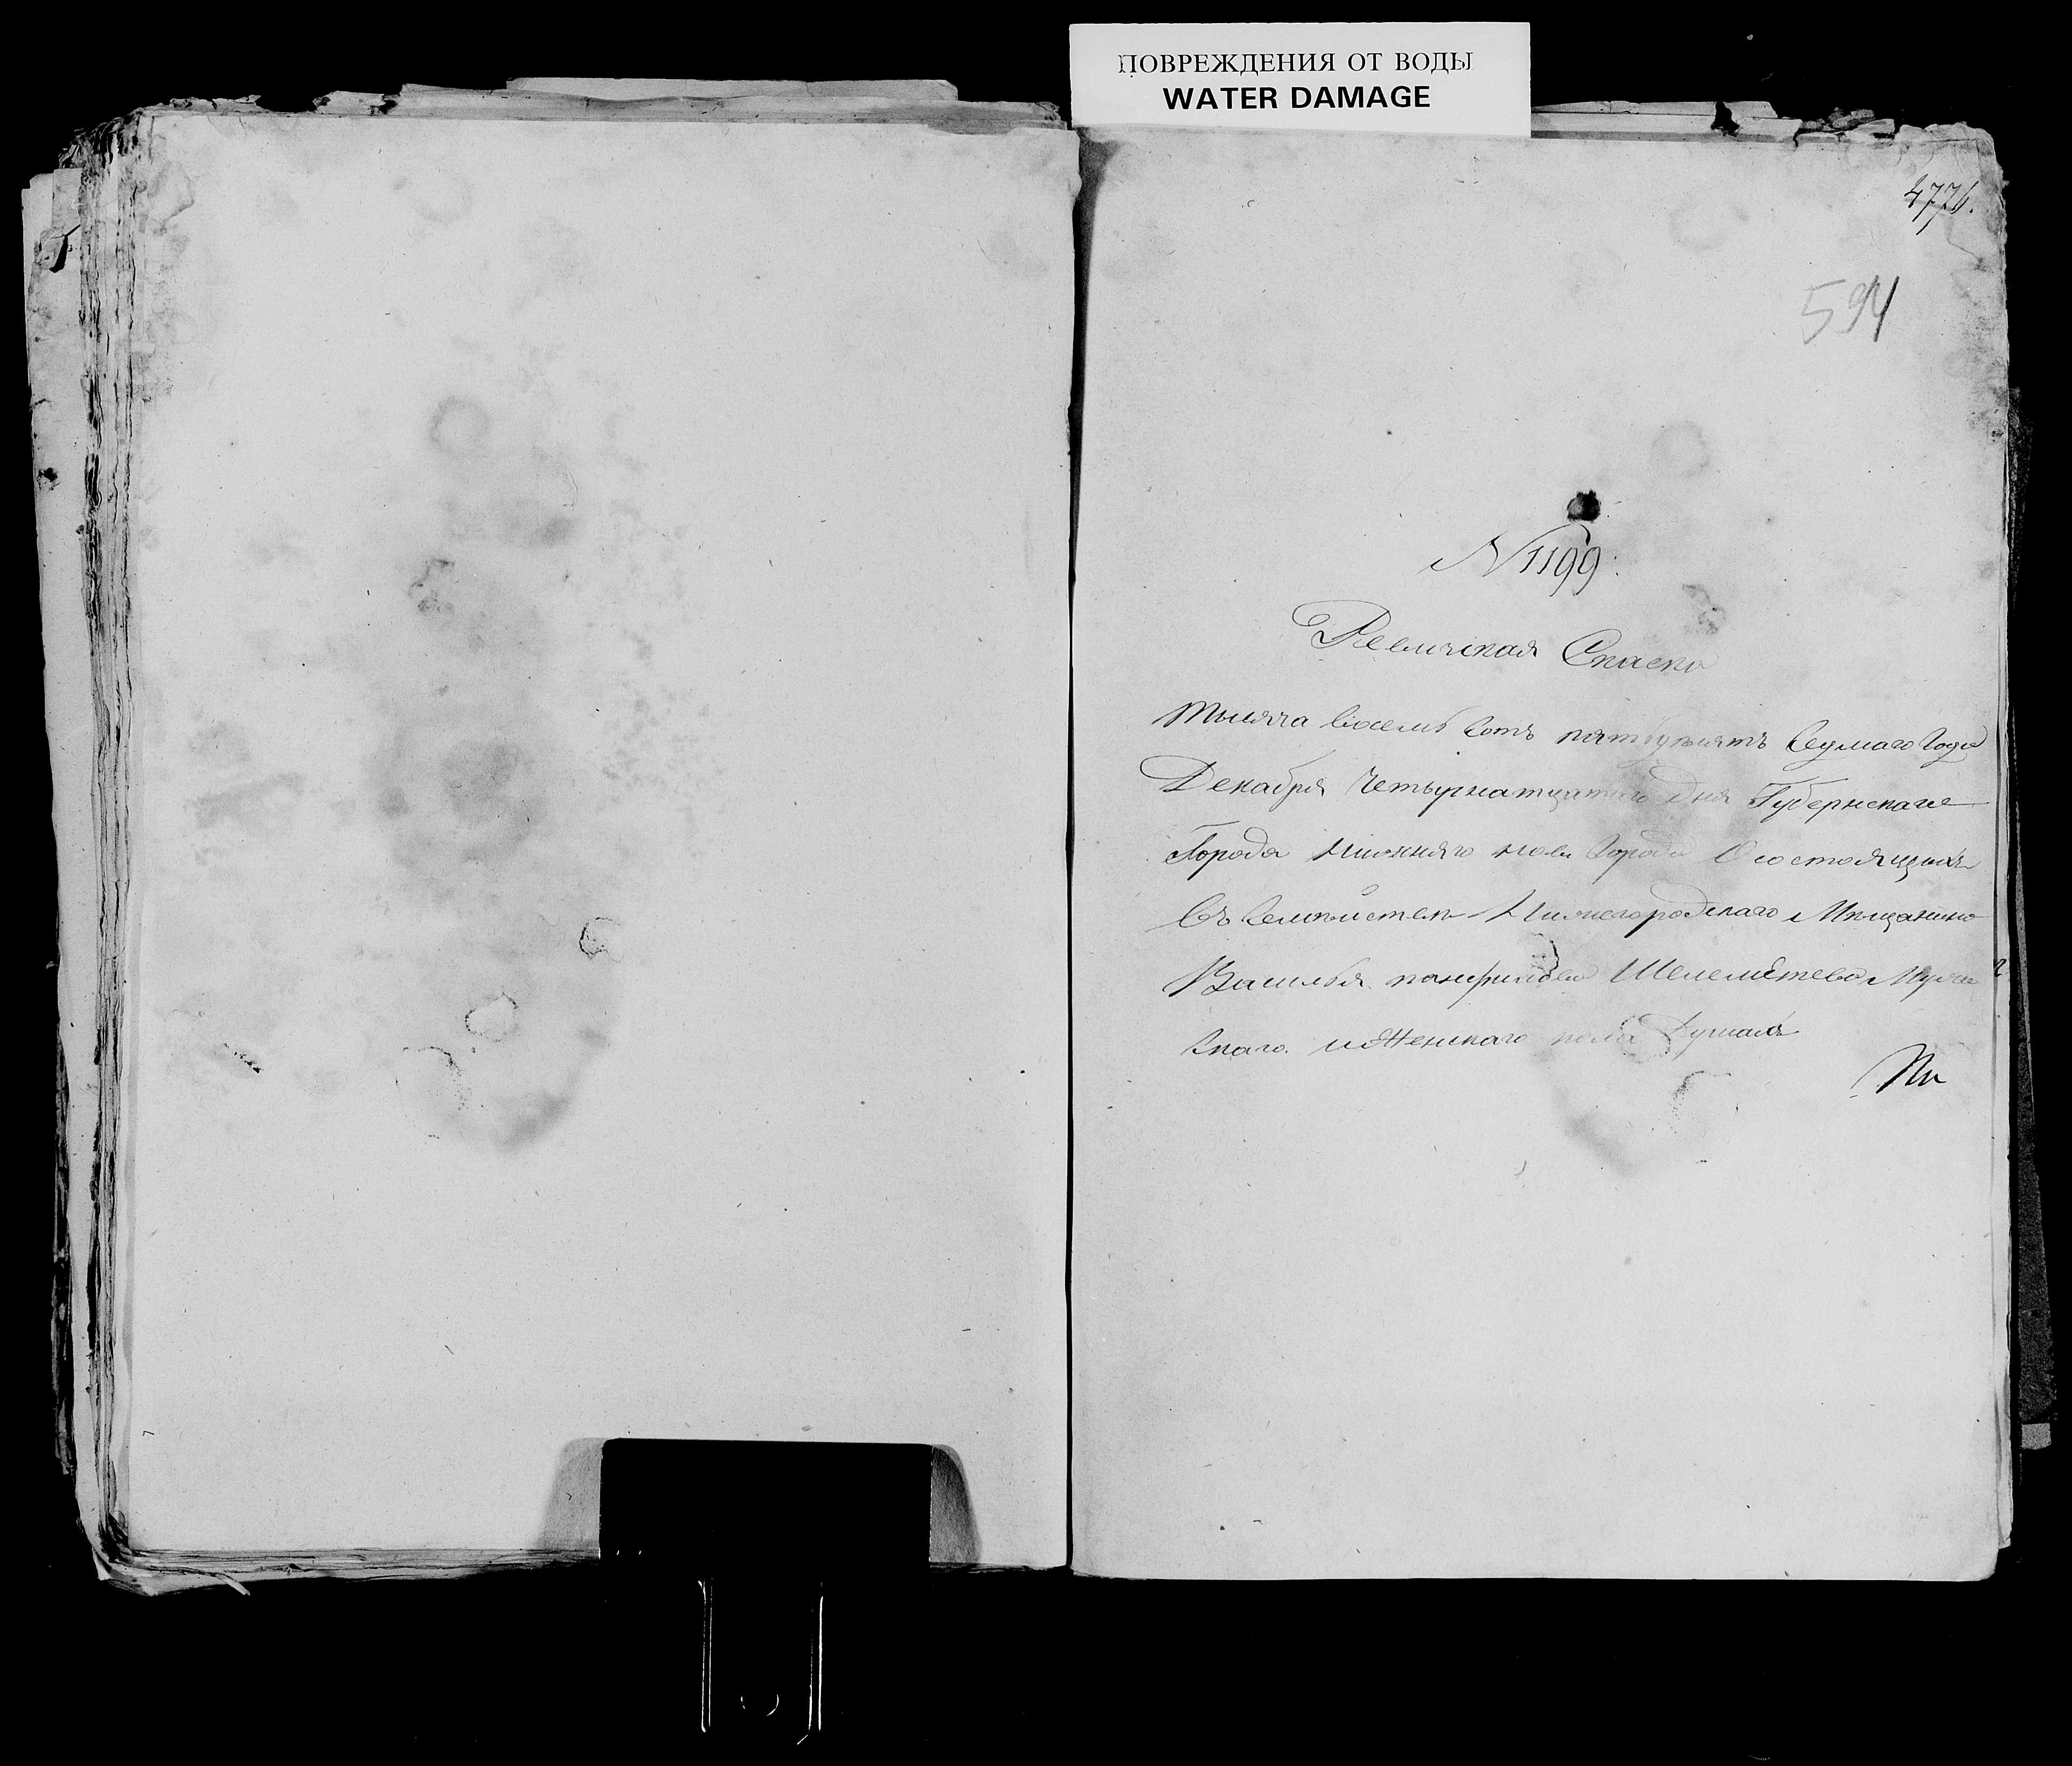 ПОВРЕЖДЕНИЯ ОТ ВОДЫ
WATER DAMAGE
594
N 1199.
Ревижская Скаска
тысяча восемь сотъ пятьдесятъ седмаго года
Декабря четырнатцатаго дня Губернскаго
Города нижняго нова города О состоящихъ
въ семействе Нижегородскаго Мещанина
Василья панфилова Шелеметева Муже
скаго и женскаго пола душахъ